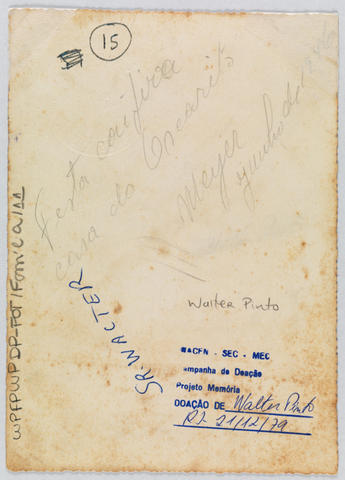 15
Festa caipira
casa do Oscarito
Meyer
junho de 1946
SR. WALTER
Walter Pinto
MACEN - SEC - MEC
ampanha de Doação
Projeto Memória
DOAÇÃO DE Walter Pinto
RJ- 21/12/79